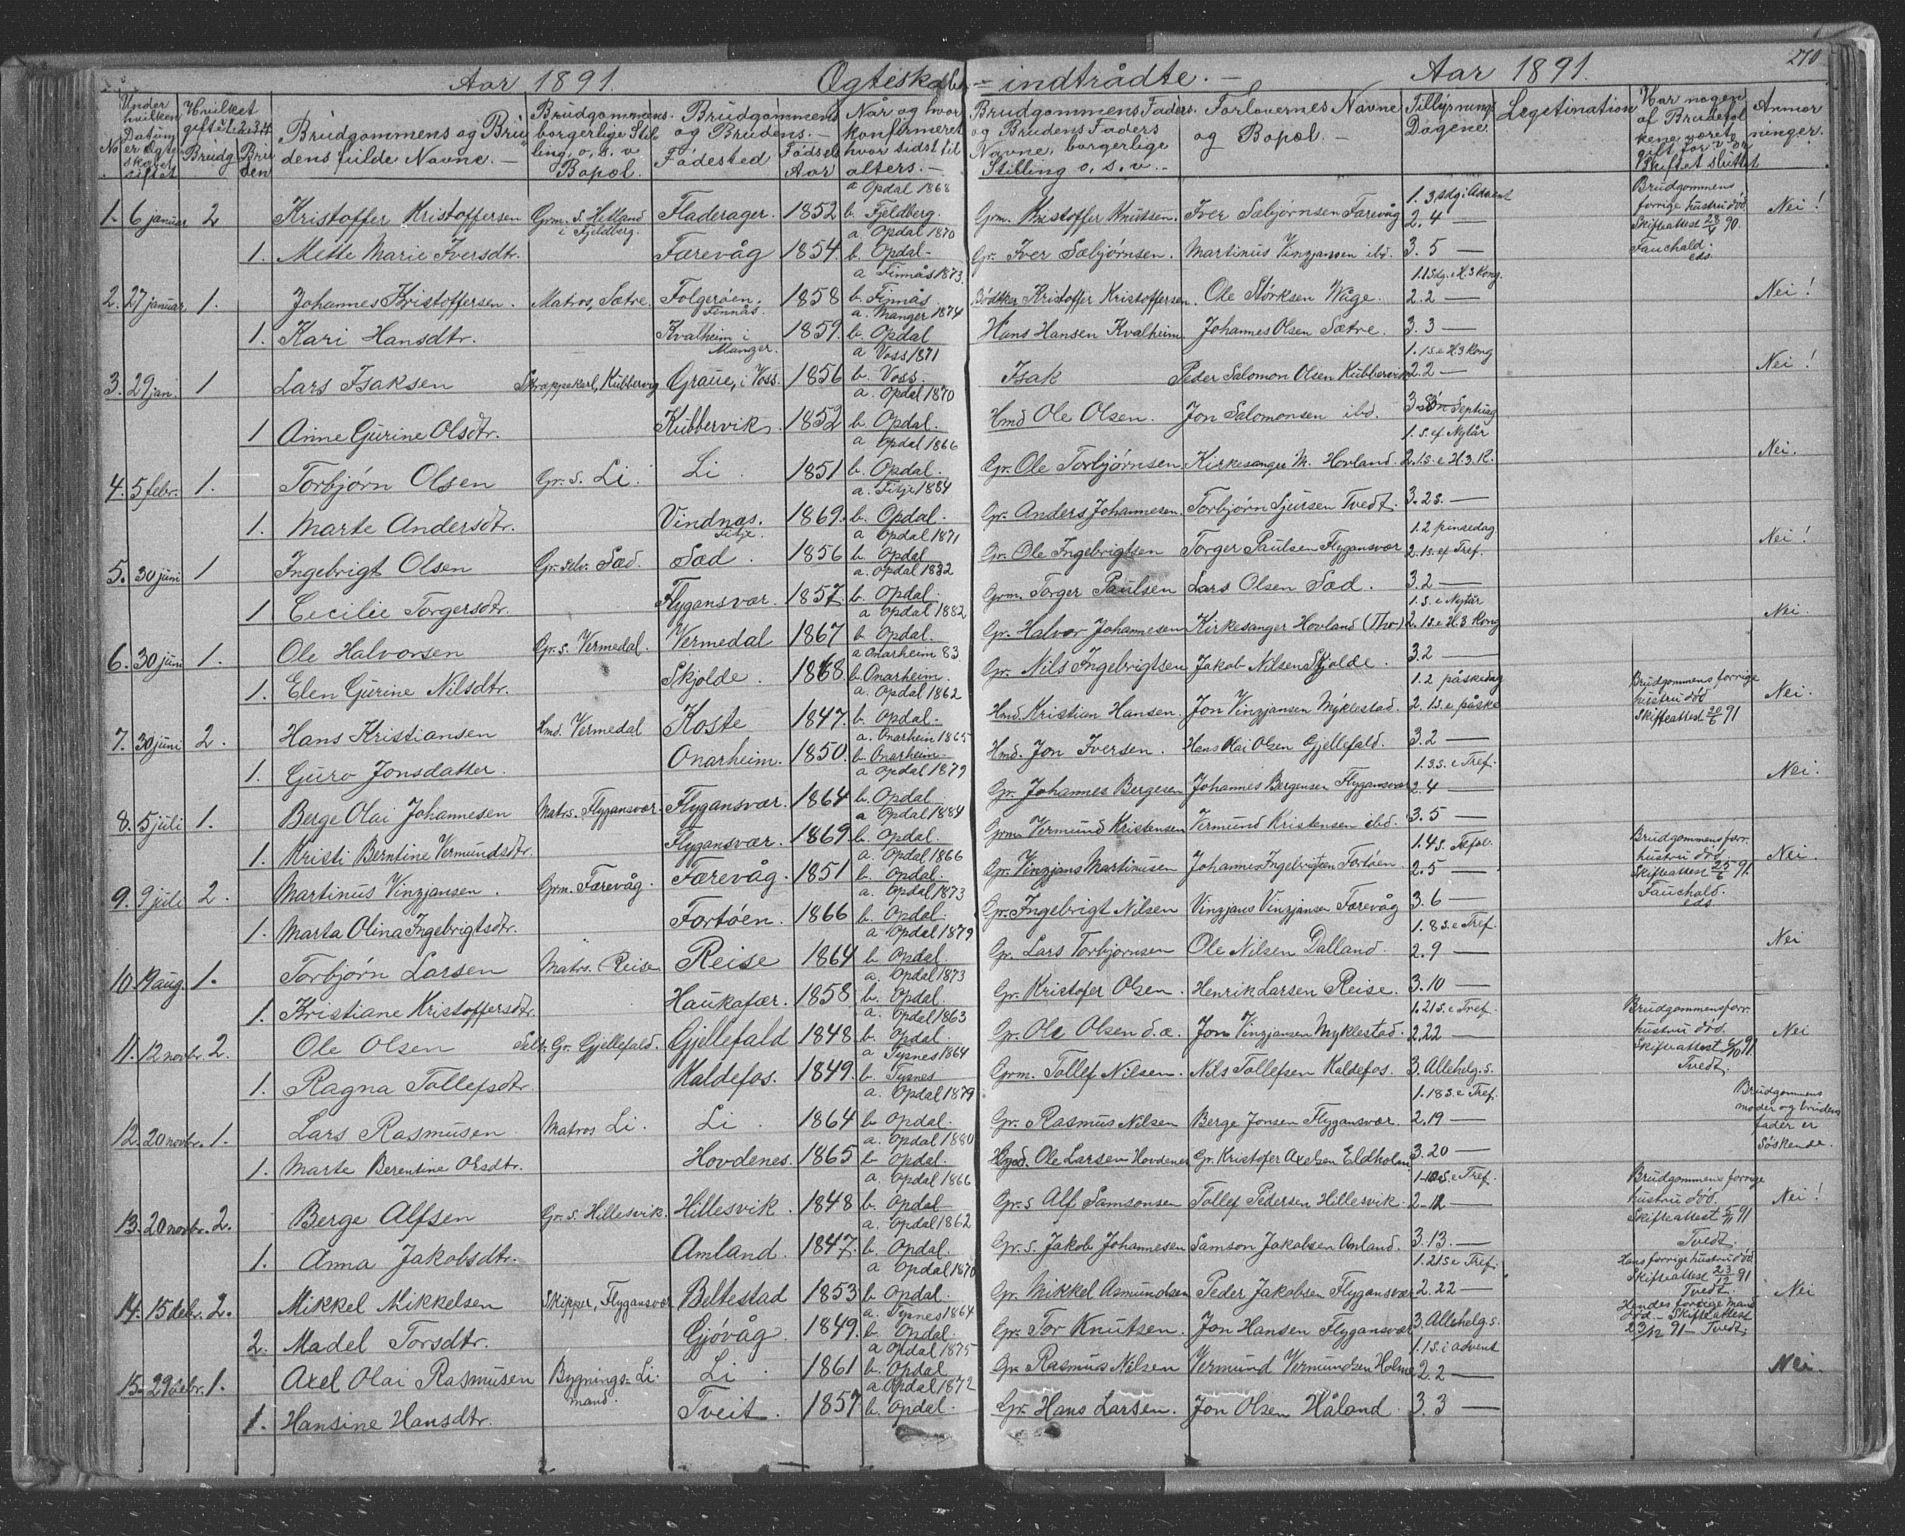 Aar 1891. Ægteskaber indtrådte. Aar 1891. 270
No Under hvilken Datum er Ægteskabet stiftet
Hvilket gifte 1. 2. 3. 4. Brudg. Bruden
Brudgommens og Brudens fulde Navne.
Brudgommens borgerlige Stilling, o, s. v. Bopæl.
Brudgommens og Brudens Fødested
Fødsels Aar
Når og hvor konfirmeret hvor sidst til alters.
Brudgommens Faders og Brudens Faders Navne, borgerlige Stilling o. s. v.
Forlovernes Navne og Bopæl.
Tillysnings Dagene
Legitimation
Har nogen af Brudefolkene været gift før
Skiftet sluttet
Anmærkninger.
1. 6 januar 2 Kristoffer Kristoffersen Grm. s. Hetland i Fjeldberg. Fladerager. 1852 a Opdal 1868 b. Fjeldberg. Grm. Kristoffer Knutsen. Iver Sæbjørnsen Færevåg 1. 3 sdg i Advent 2. 4 — Brudgommens forrige hustru död. Skifteattest 28/4 90. Fauchald. eds. Nei!
1. Mette Marie Iversdtr. Færevåg 1854. a Opdal 1870 b. Opdal Gr. Iver Sæbjørnsen. Martinus Vinzjansen ibd. 3. 5 —
2. 27 januar 1. Johannes Kristoffersen. Matros, Sætre. Folgerøen, Finnås. 1858 a Finnås 1873 b. Finnås Bödker Kristoffer Kristoffersen. Ole Störksen Wåge. 1. 1 Sdg. e. H. 3 Kong. 2. 2 — Nei!
1. Kari Hansdtr. Kvalheim i Manger. 1859. a. Manger 1874 b. Opdal Hans Hansen Kvalheim Johannes Olsen Sætre. 3. 3 —
3. 29 jan. 1 Lars Isaksen Strappekarl, Kubbervig Graue, i Voss. 1856 a Voss 1871 b. Voss. Isak Peder Salomon Olsen Kubbervik 1. 1 s. e H. 3 Kong 2. 2 — Nei!
1 Anne Gurine Olsdtr. Kubbervik. 1852 a. Opdal 1870 b. Opdal. Hmd Ole Olsen. Jon Salomonsen ibd. 3. Septuag
4. 5 febr. 1. Torbjørn Olsen Gr. s. Li. Li 1851 a Opdal 1866 b. Opdal. Gr. Ole Torbjørnsen Kirkesanger M. Hovland. 1. S. ef Nytår 2. 1 S. e H. 3. K. Nei.
1. Marte Andersdtr. Vindnæs. Fitje. 1869. a. Fitje 1884 b. Opdal. Gr. Anders Johannesen. Torbjørn Sjursen Tvedt. 3. 2 S. —
5. 30 juni 1 Ingebrigt Olsen Gr. selv. Sæd. Sæd. 1856 a Opdal 1871 b. Opdal Gr. Ole Ingebrigtsen Torger Paulsen Flygansvær 1. 2 pinsedag 2. 1 s. ef Tref. Nei!
1 Cecilie Torgersdtr. Flygansvær. 1857. a. Opdal 1882 b. Opdal. Grm. Torger Paulsen Lars Olsen Sæd. 3. 2 —
6. 30 juni 1. Ole Halvorsen Gr. s. Vermedal. Vermedal 1867 a Opdal 1882 b. Opdal. Gr. Halvor Johannesen Kirkesanger Hovland (Tho) 1. S. e Nytår 2. 1 S. e H. 3 Kong Nei.
1. Elen Gurine Nilsdtr. Skjolde. 1868. a Onarheim 83 b. Onarheim. Gr. Nils Ingebrigtsen Jakob Nilsen Skjolde. 3. 2 —
7. 30 juni 2. Hans Kristiansen Hmd. Vermedal Koste 1847. a. Opdal 1862 b. Opdal. Hmd. Kristian Hansen. Jon Vinzjansen Myklestad. 1. 2 påskedag 2. 1 S. e påske Brudgommens forrige hustru död Skifteattest 20/6 91 Nei.
1. Guro Jonsdatter. Onarheim. 1850. a. Onarheim 1865 b. Onarheim Hmd. Jon Iversen. Hans Olai Olsen Gjellefald. 3. 2 —
8. 5 juli 1. Berge Olai Johannesen Matrs. Flygansvær Flygansvær. 1864 a Opdal 1879 b. Opdal. Gr. Johannes Bergesen Johannes Bergersen Flygansvær 1. 3 S. e Tref. 2. 4 — Nei.
1. Kristi Berntine Vermundsdtr. Flygansvær. 1869. a Opdal 1884 b. Opdal. Grm Vermund Kristensen Vermund Kristensen ibd. 3. 5 —
9. 9 juli 2. Martinus Vinzjansen. Grm. Færevåg. Færevåg. 1851 a. Opdal 1866 b. Opdal. Gr. Vinzjans Martinusen Johannes Ingebrigtsen Fortøen. 1. 4 S. Tref. 2. 5 — Brudgommens forr. hustru död. Skifteattest 25/6 91. Fauchald. eds. Nei.
1. Marta Olina Ingebrigtsdtr. Fortøen. 1866 a. Opdal 1873 b. Opdal. Gr. Ingebrigt Nilsen Vinzjans Vinzjansen Færevåg 3. 6 —
10. 19 aug. 1. Torbjørn Larsen Matrs. Reise Reise 1864 a Opdal 1879 b. Opdal. Gr. Lars Torbjørnsen Ole Nilsen Dalland. 1. 8 S. e Tref. 2. 9 — Nei
1. Kristiane Kristoffersdtr. Haukafær. 1858. a. Opdal 1873 b. Opdal. Gr. Kristofer Olsen. Henrik Larsen Reise. 3. 10 —
11. 12 novbr. 2. Ole Olsen Selv. Gr. Gjellefald. Gjellefald 1848. a. Opdal 1863 b. Opdal Gr. Ole Olsen d. æ. Jon Vinzjansen Myklestad. 1. 21 S. e Tref. 2. 22 — Brudgommens forr. hustru död. Skifteattest 6/10 91. Tvedt. Nei
1. Ragna Tollefsdtr. Kaldefos. 1849. a Tysnes 1864 b. Tysnes Grm. Tollef Nilsen. Nils Tollefsen Kaldefos. 3. Allehelg. s.
12. 20 novbr. 1. Lars Rasmusen Matros Li. Li. 1864 a. Opdal 1879 b. Opdal. Gr. Rasmus Nilsen Berge Jonsen Flygansvær. 1. 18 S. e Tref. 2. 19 — Brudgommens moder og brudens fader er Söskende.
1. Marte Berentine Olsdtr. Hovdenes. 1865 a. Opdal 1880 b. Opdal. Ole Larsen Hovdenes Gr. Kristofer Axelsen Eldholm 3. 20 —
13. 20 novbr. 2. Berge Alfsen Gr. s. Hillesvik. Hillesvik. 1848 a. Opdal 1866 b. Opdal Gr. s Alf Samsonsen Tollef Pedersen Hillesvik. S. e Tref. 2. 12 — Brudgommens forrige hustru död. Skifteattest 5/11 91 Tvedt. Nei!
1. Anna Jakobsdtr. Amland. 1847. a. Opdal 1862 b. Opdal. Gr. s. Jakob Johannesen Samson Jakobsen Amland. 3. 13. —
14. 15 debr. 2. Mikkel Mikkelsen Skipper, Flygansvær Beltestad 1853 a Opdal 1870 b. Opdal. Gr. Mikkel Asmundsen Peder Jakobsen Flygansvær 1. 21 S. e Tref. 2. 22 — Hans forrige hustru död Skifteattest 23/12 91 Tvedt. Nei
2. Madel Torsdtr. Gjøvåg. 1849. a. Tysnes 1864 b. Opdal. Gr. Tor Knutsen. Jon Hansen Flygansvær 3. Allehelg. s. Hendes forrige mand död. — Skifteattest 23/12 91 — Tvedt.
15. 29 debr. 1. Axel Olai Rasmusen Bygningsmand. Li. Li. 1861 a Opdal 1875 b. Opdal Gr. Rasmus Nilsen Vermund Vermundsen Holme 1. 1 S. i advent 2. 2 — Nei.
1. Hansine Hansdtr. Tveit. 1857 a Opdal 1872 b. Opdal. Gr. Hans Larsen. Jon Olsen Håland. 3. 3 —